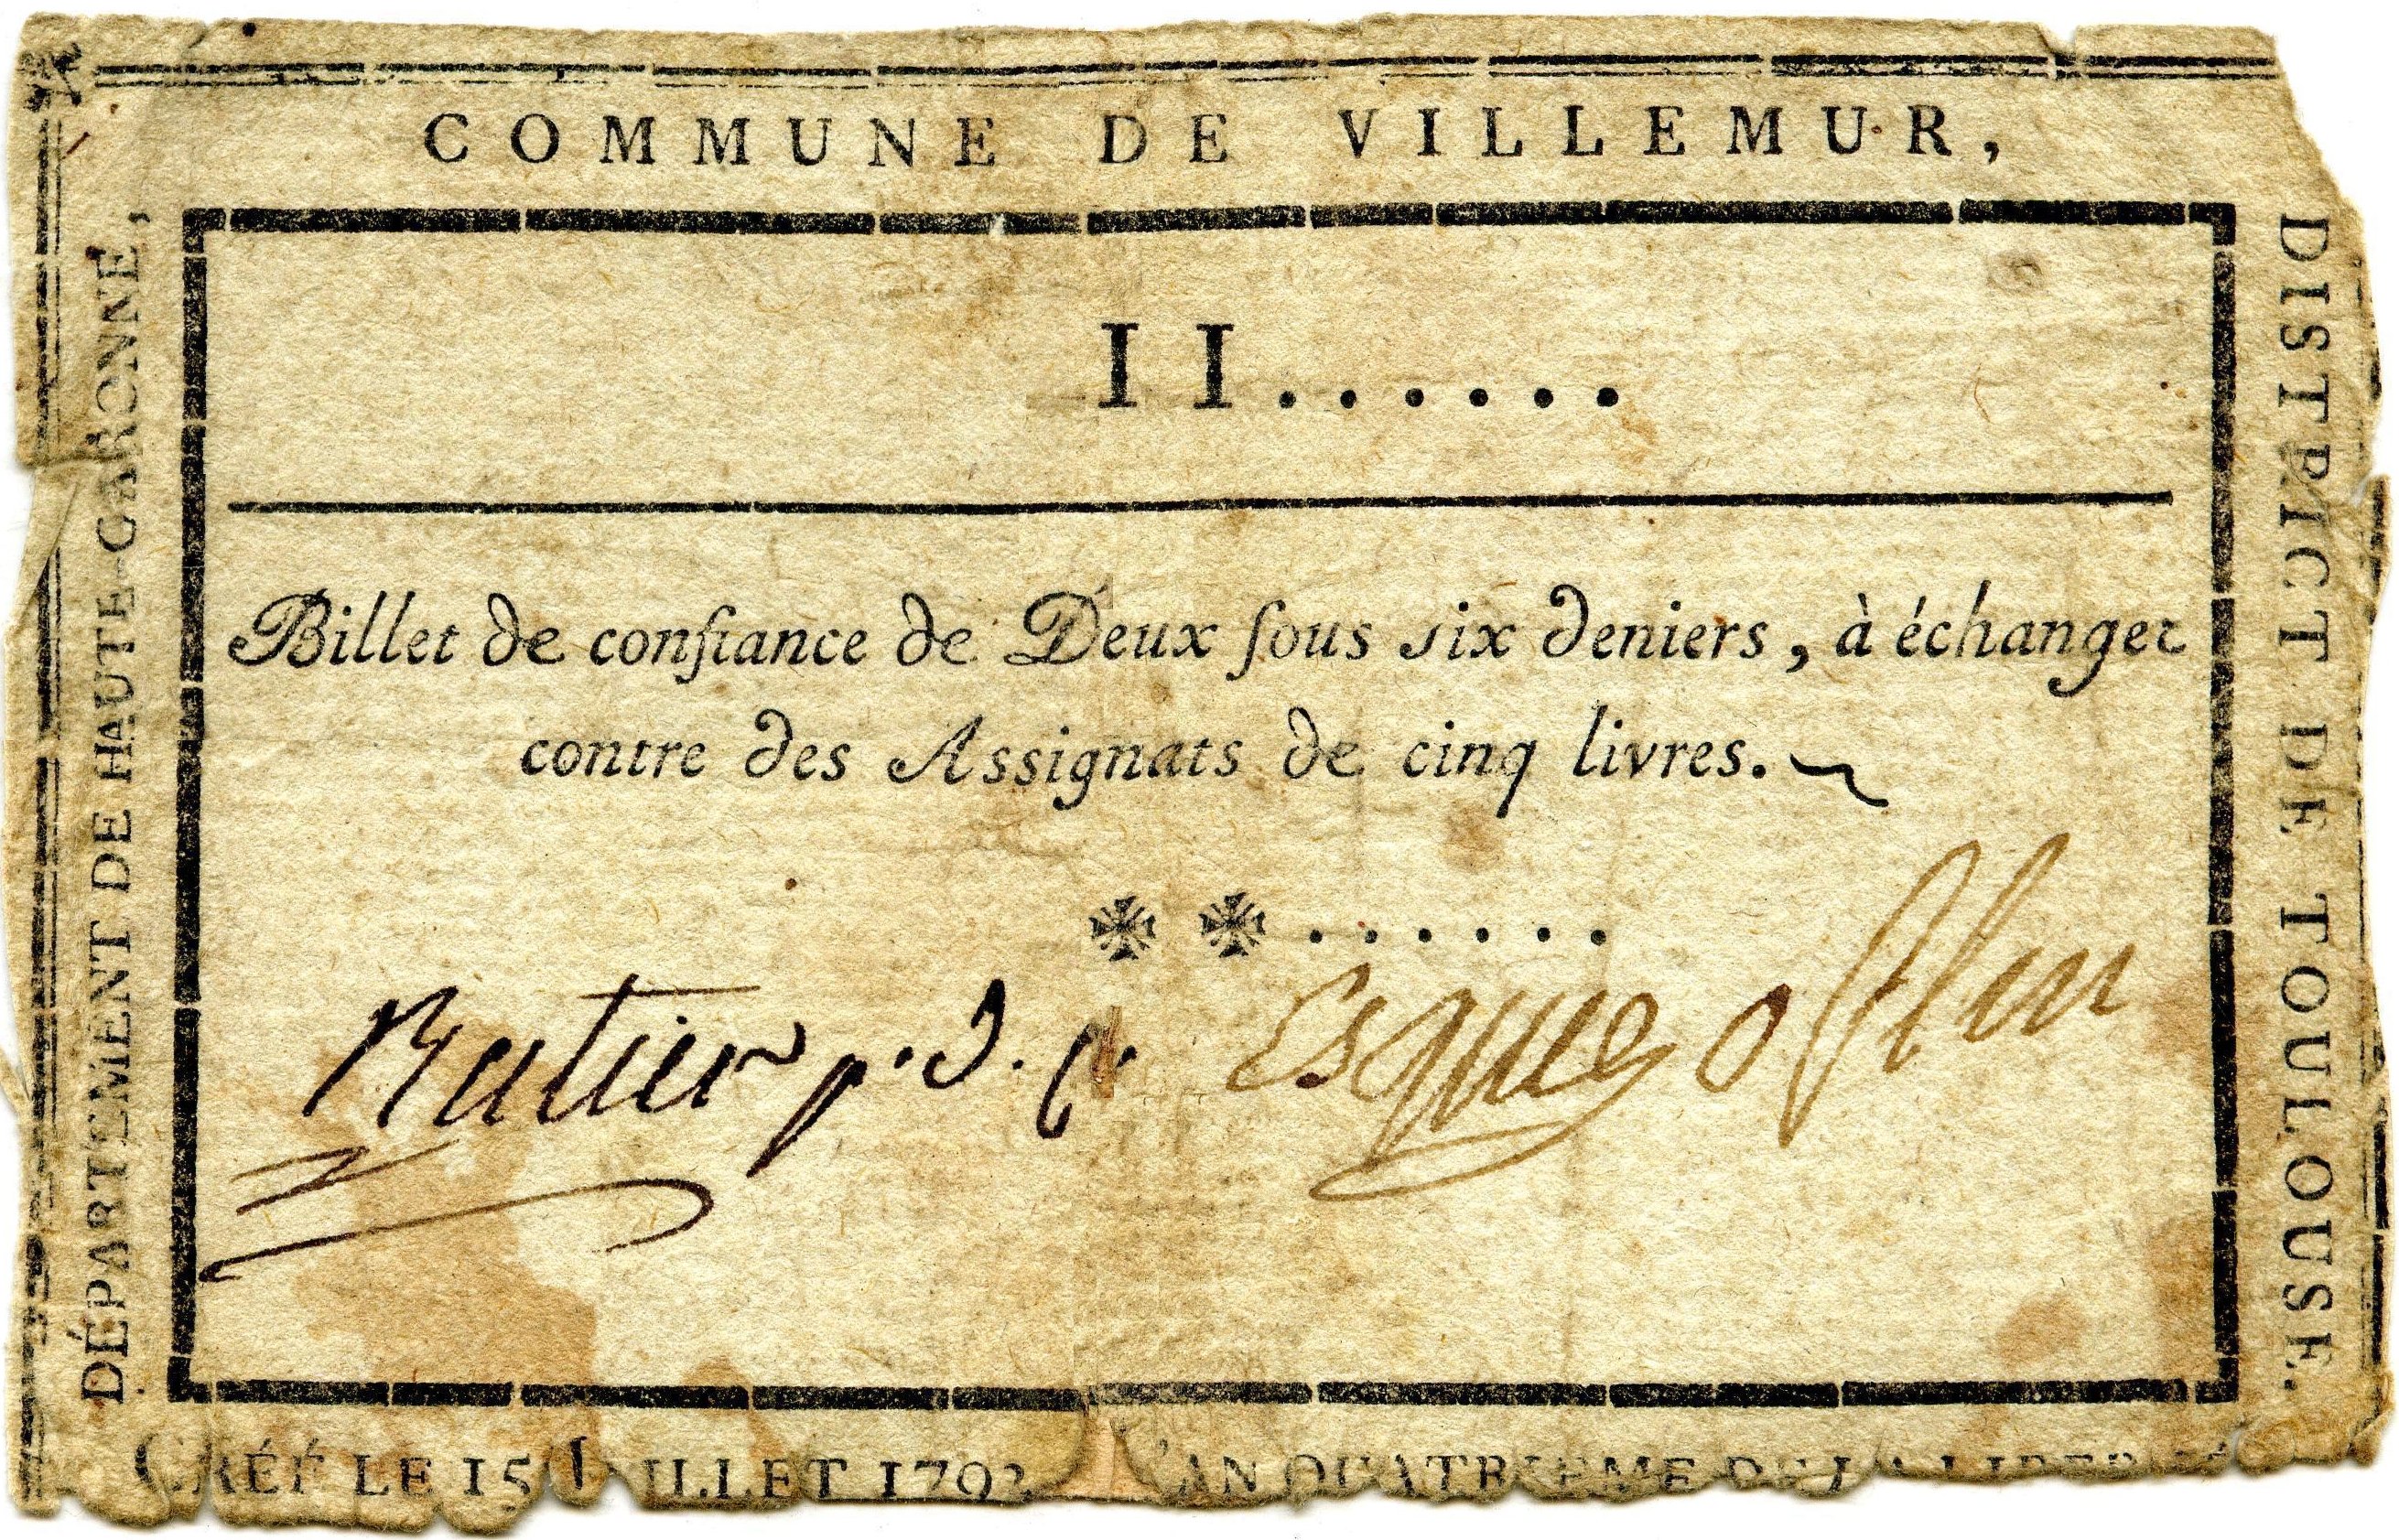 COMMUNE DE VILLEMUR,
DÉPARTEMENT DE HAUTE-GARONNE,
DISTRICT DE TOULOUSE.
II......
Billet de confiance de Deux ſous six deniers, à échanger
contre des Assignats de cinq livres.
** ......
Ratier p. d. c. Esquegoſſen
CRÉÉ LE 15 JUILLET 1792 L'AN QUATRIEME DE LA LIBERTÉ